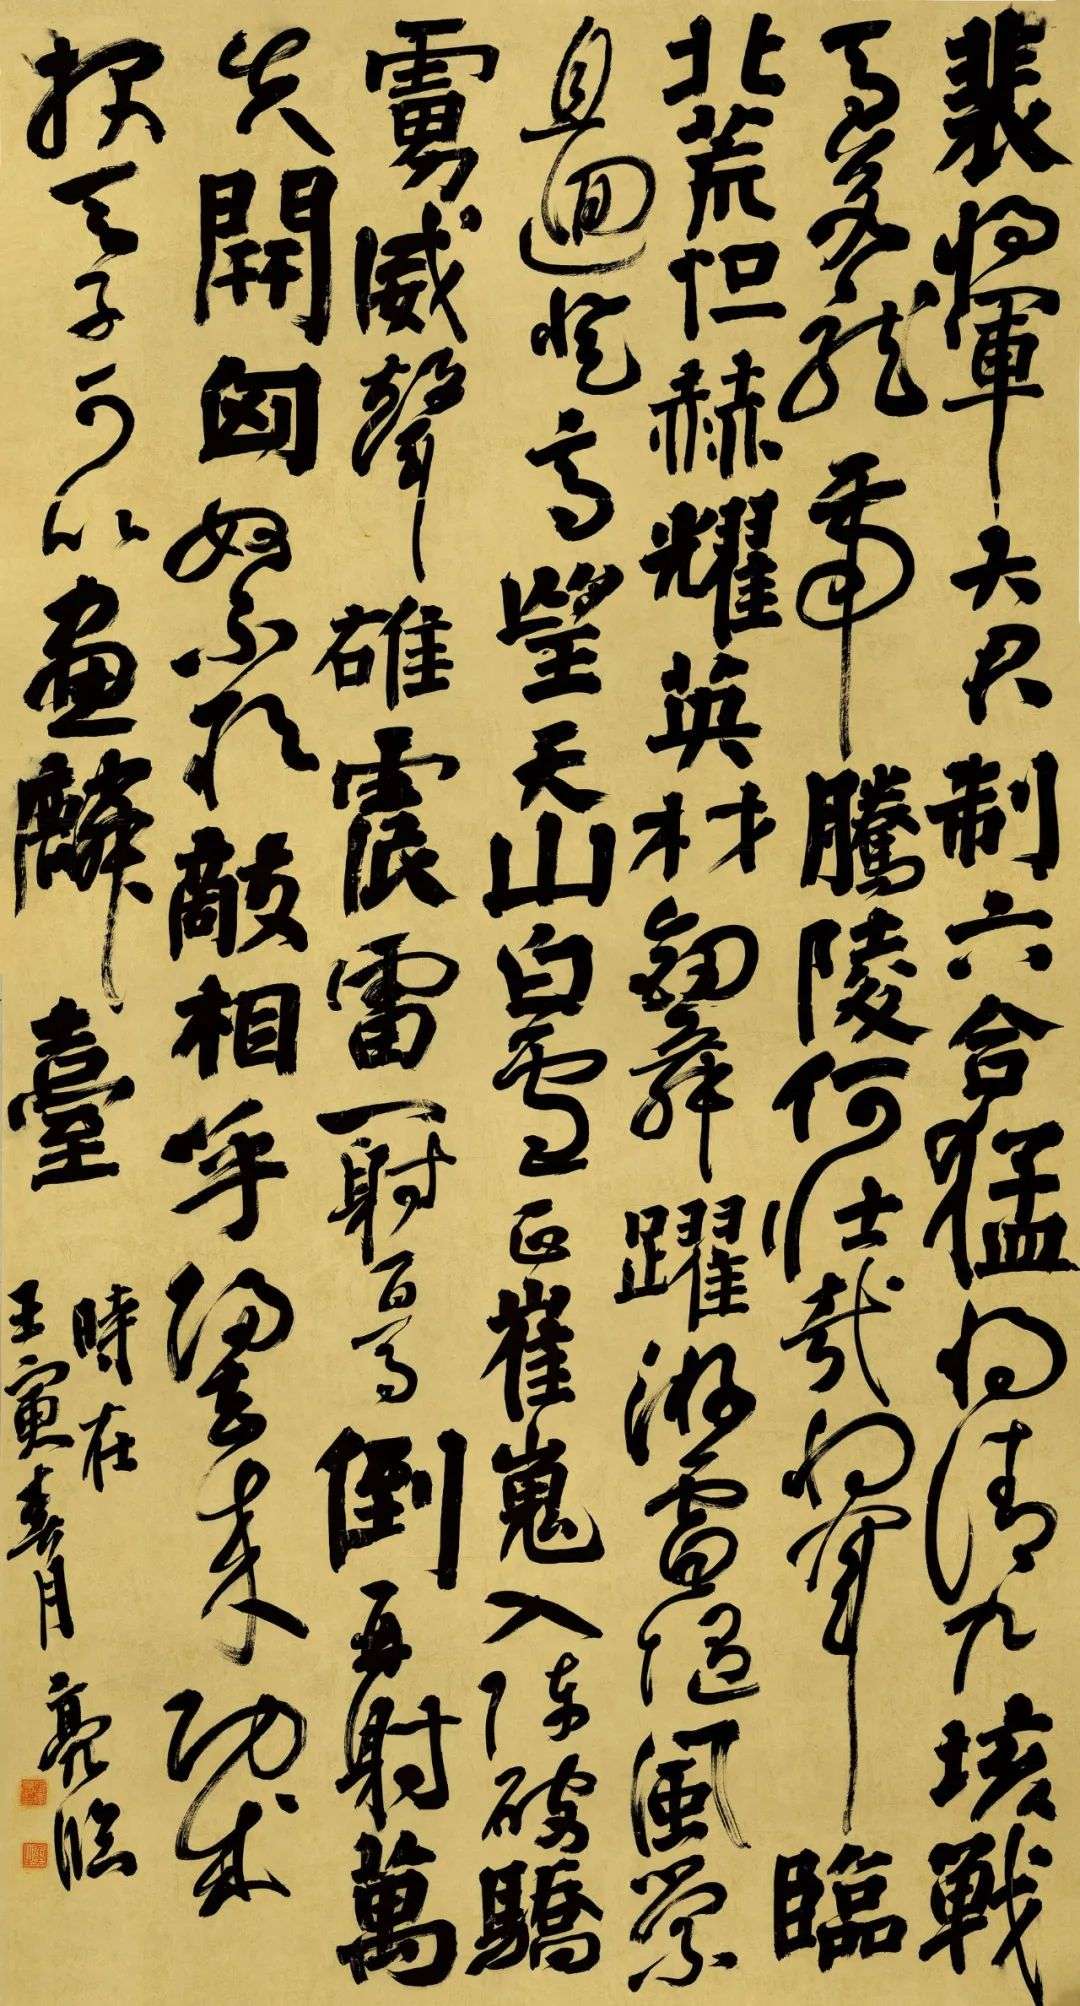 裴將軍大君制六合猛將清九垓戰
馬若龍虎騰陵何壯哉將軍臨
北荒怛赫耀英材劍舞躍游雷隨風縈
且迴登高望天山白雪正崔嵬入陣破驕
虜威聲雄震雷一射百馬倒再射萬
夫開匈奴不敢敵相呼歸去來功成
報天子可以畫麟臺
時在
壬寅春月 亮臨